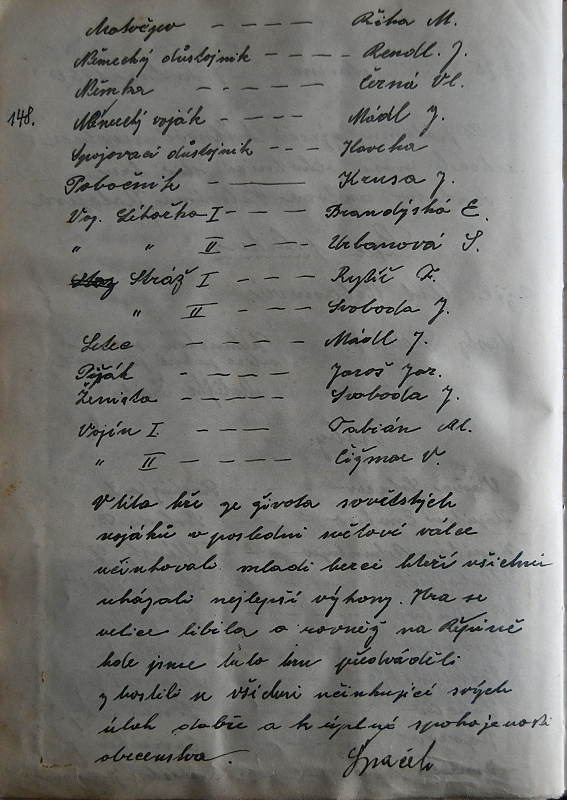 Matvějev - - - - Říha M.
Německý důstojník - - - - Rendl. J.
Němka - - - - Černá Vl.
148. Německý voják - - - - Mádl J.
Spojovací důstojník - - - Havelka
Pobočník - —— Krusa J.
Voj. Lékařka I - - - Brandýská E.
„ „ II - - - Urbanová S.
Stráž I - - - Rytíř F.
„ II - - - Svoboda J.
Letec - - - - - Mádl J.
Pěšák - - - - Jaroš Jar.
Ženista - - - - - Svoboda J.
Vojín I. - - - Fabián Al.
„ II - - - - Čižmar V.
V této hře ze života sovětských
vojáků v poslední světové válce
účinkovali mladí herci kteří všichni
ukázali nejlepší výkony. Hra se
velice líbila a rovněž na
kde jsme tuto hru předváděli
zhostili se všichni účinkující svých
úloh dobře a k úplné spokojenosti
obecenstva. Špaček